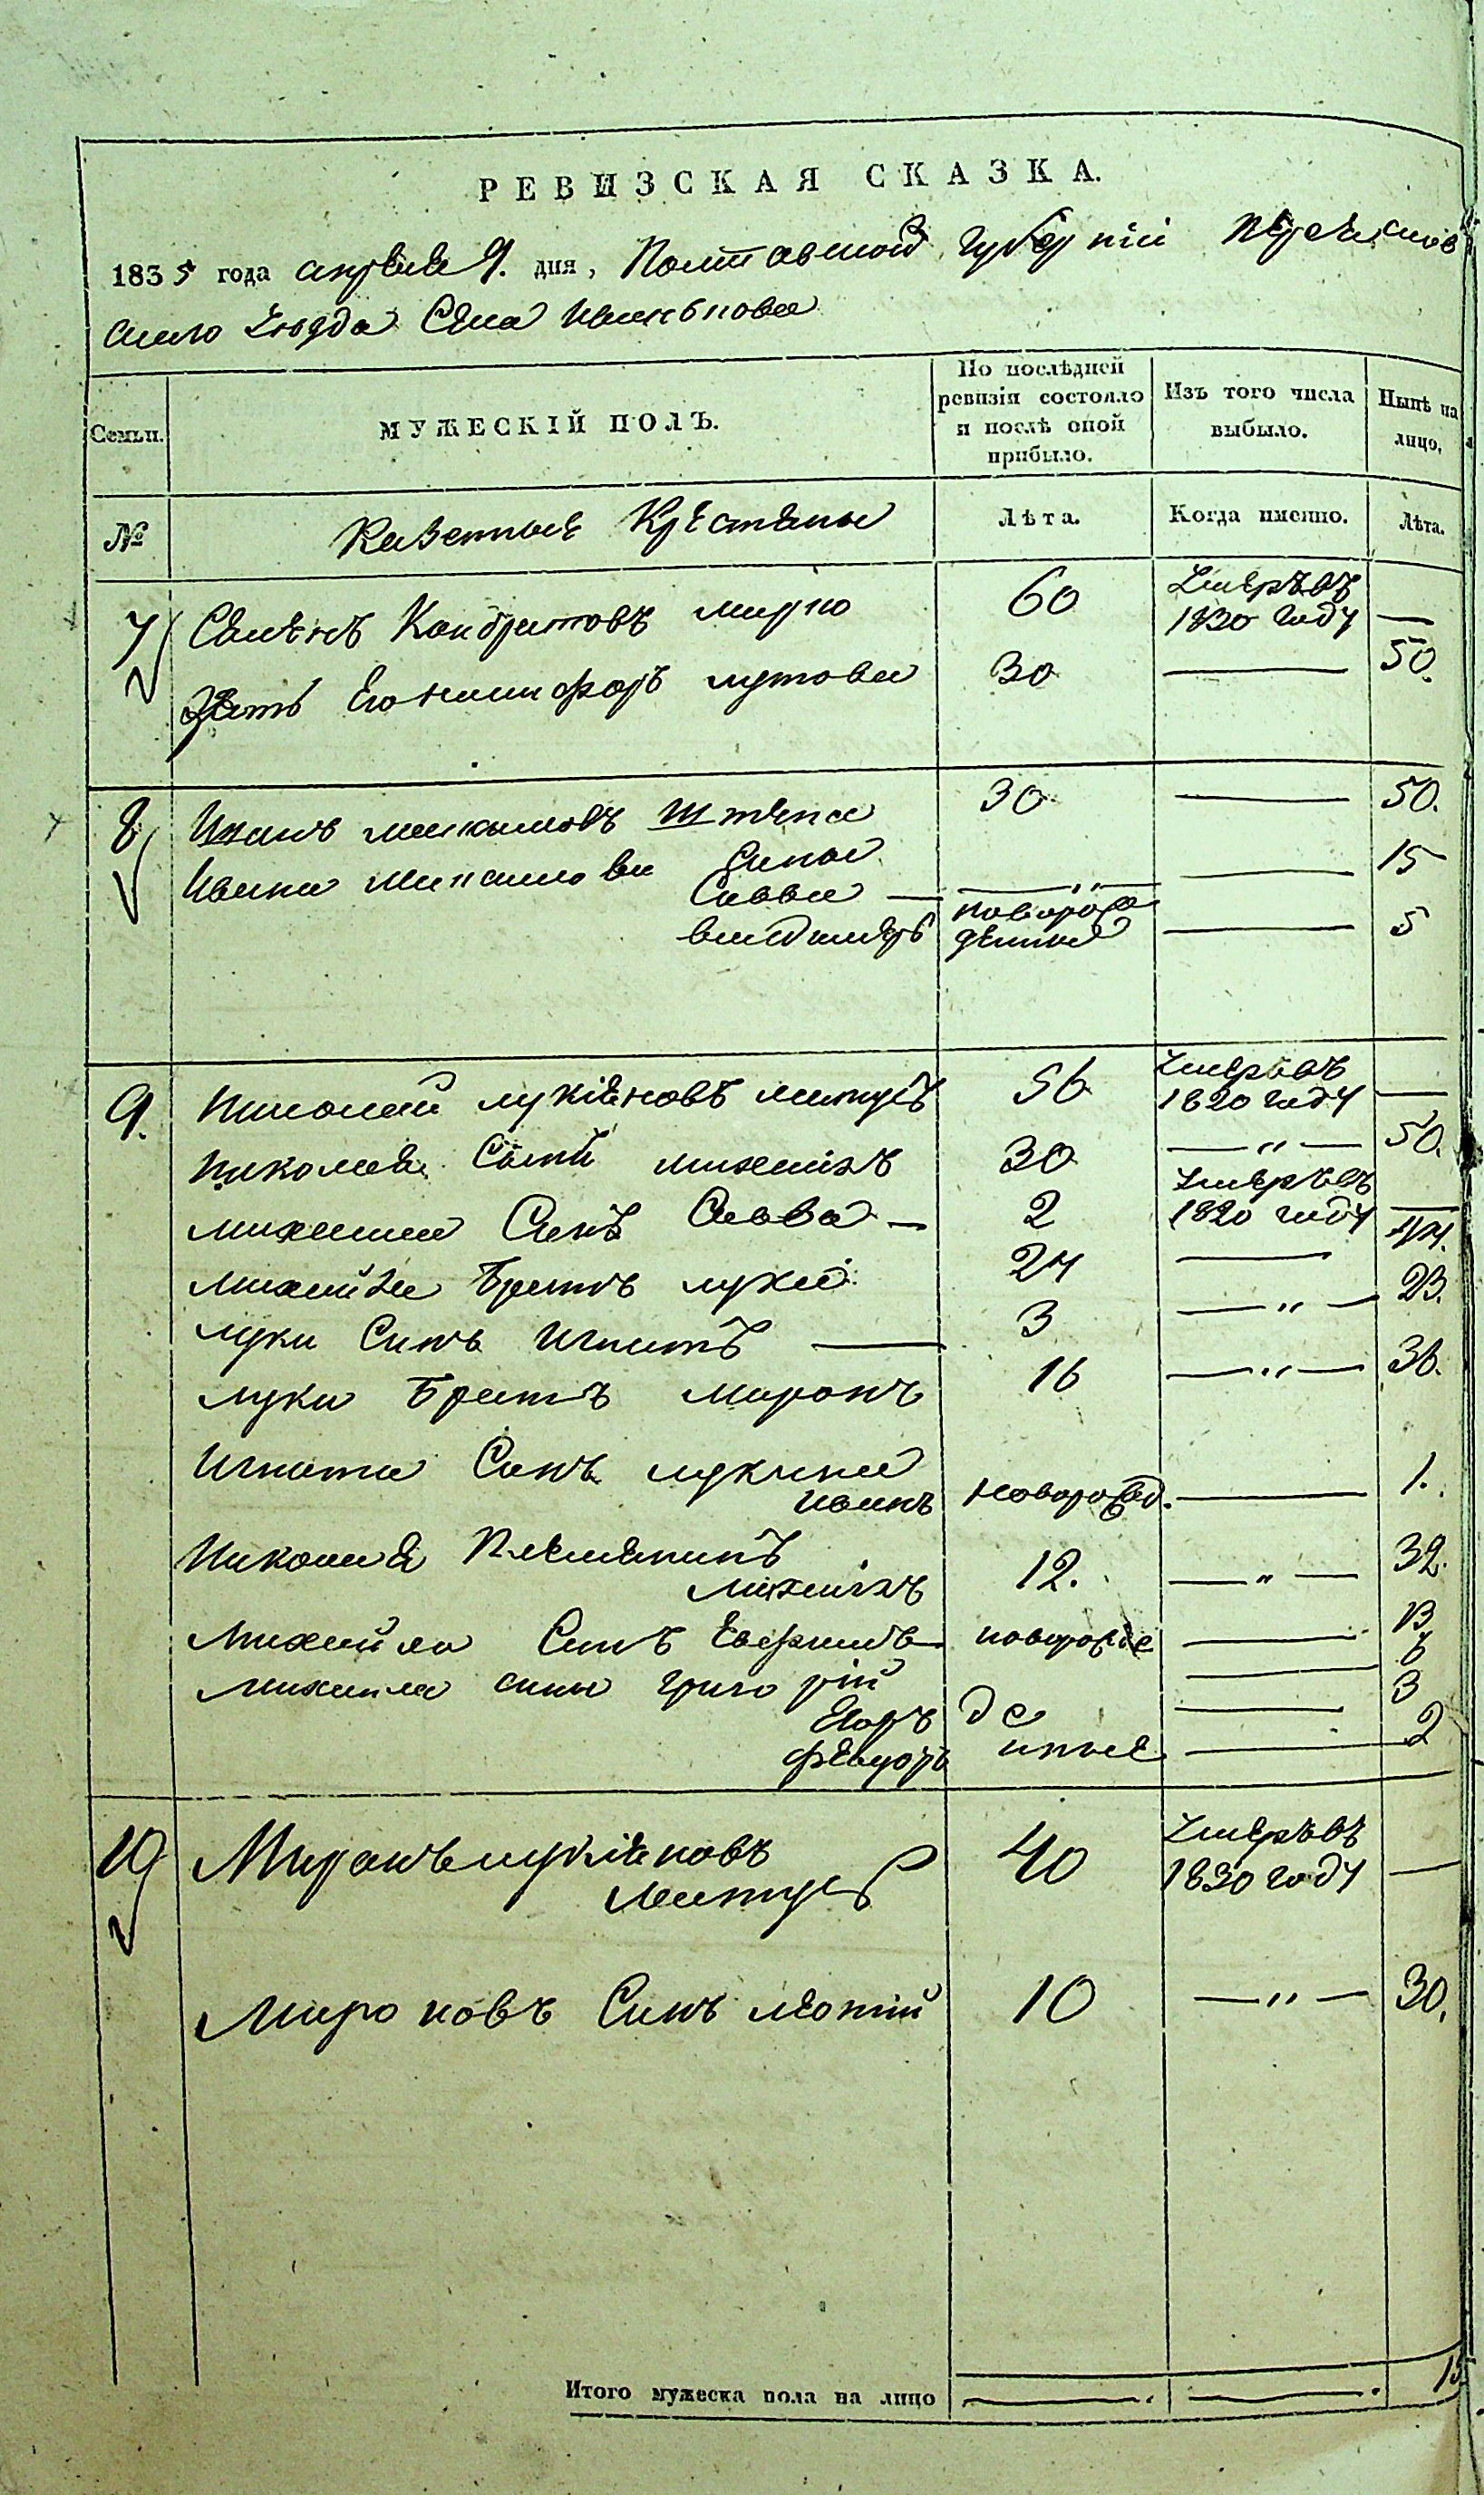 РЕВИЗСКАЯ СКАЗКА.
1835 года апреля 9. дня, Полтавской Губерніи
Уезда Села Иваньнова
Семьи.
МУЖЕСКІЙ ПОЛЪ.
По послѣдней ревизіи состояло и послѣ оной прибыло.
Изъ того числа выбыло.
Нынѣ на лицо.
№
Казенные Крестяны
Лѣта.
Когда именно.
Лѣта.
7 Семенъ Кондратовъ 60 Умеръ въ 1830 году —
Зять Его Никифоръ 30 — 50.
8 Иванъ Максимовъ Штепа 30 — 50.
Ивана сины
Савва — „ — 15
Владимеръ новорожденные — 5
9. Николай Лукіяновъ 56 Умеръ въ 1820 году —
Николая Синъ Михаилъ 30 — „ — 50.
Михаила Синъ Савва — 2 Умеръ въ 1820 году —
Михайла Братъ Лука 24 — 44.
Луки Синъ Игнатъ — 3 — „ — 23.
Луки Братъ Миронъ 16 — „ — 36.
Игната Синъ Лукина
Иванъ новорожд. — 1.
Николая Племеникъ
Михаилъ 12. — „ — 32.
Михайла Синъ — 13
Михаила сины Григорій — 6
Егоръ де — 3
Феодоръ нные — 2
10 Миронъ Лукіяновъ
40 Умеръ въ 1830 году —
Мироновъ Синъ Леонтій 10 — „ — 30.
Итого мужеска пола на лицо — . — . 15